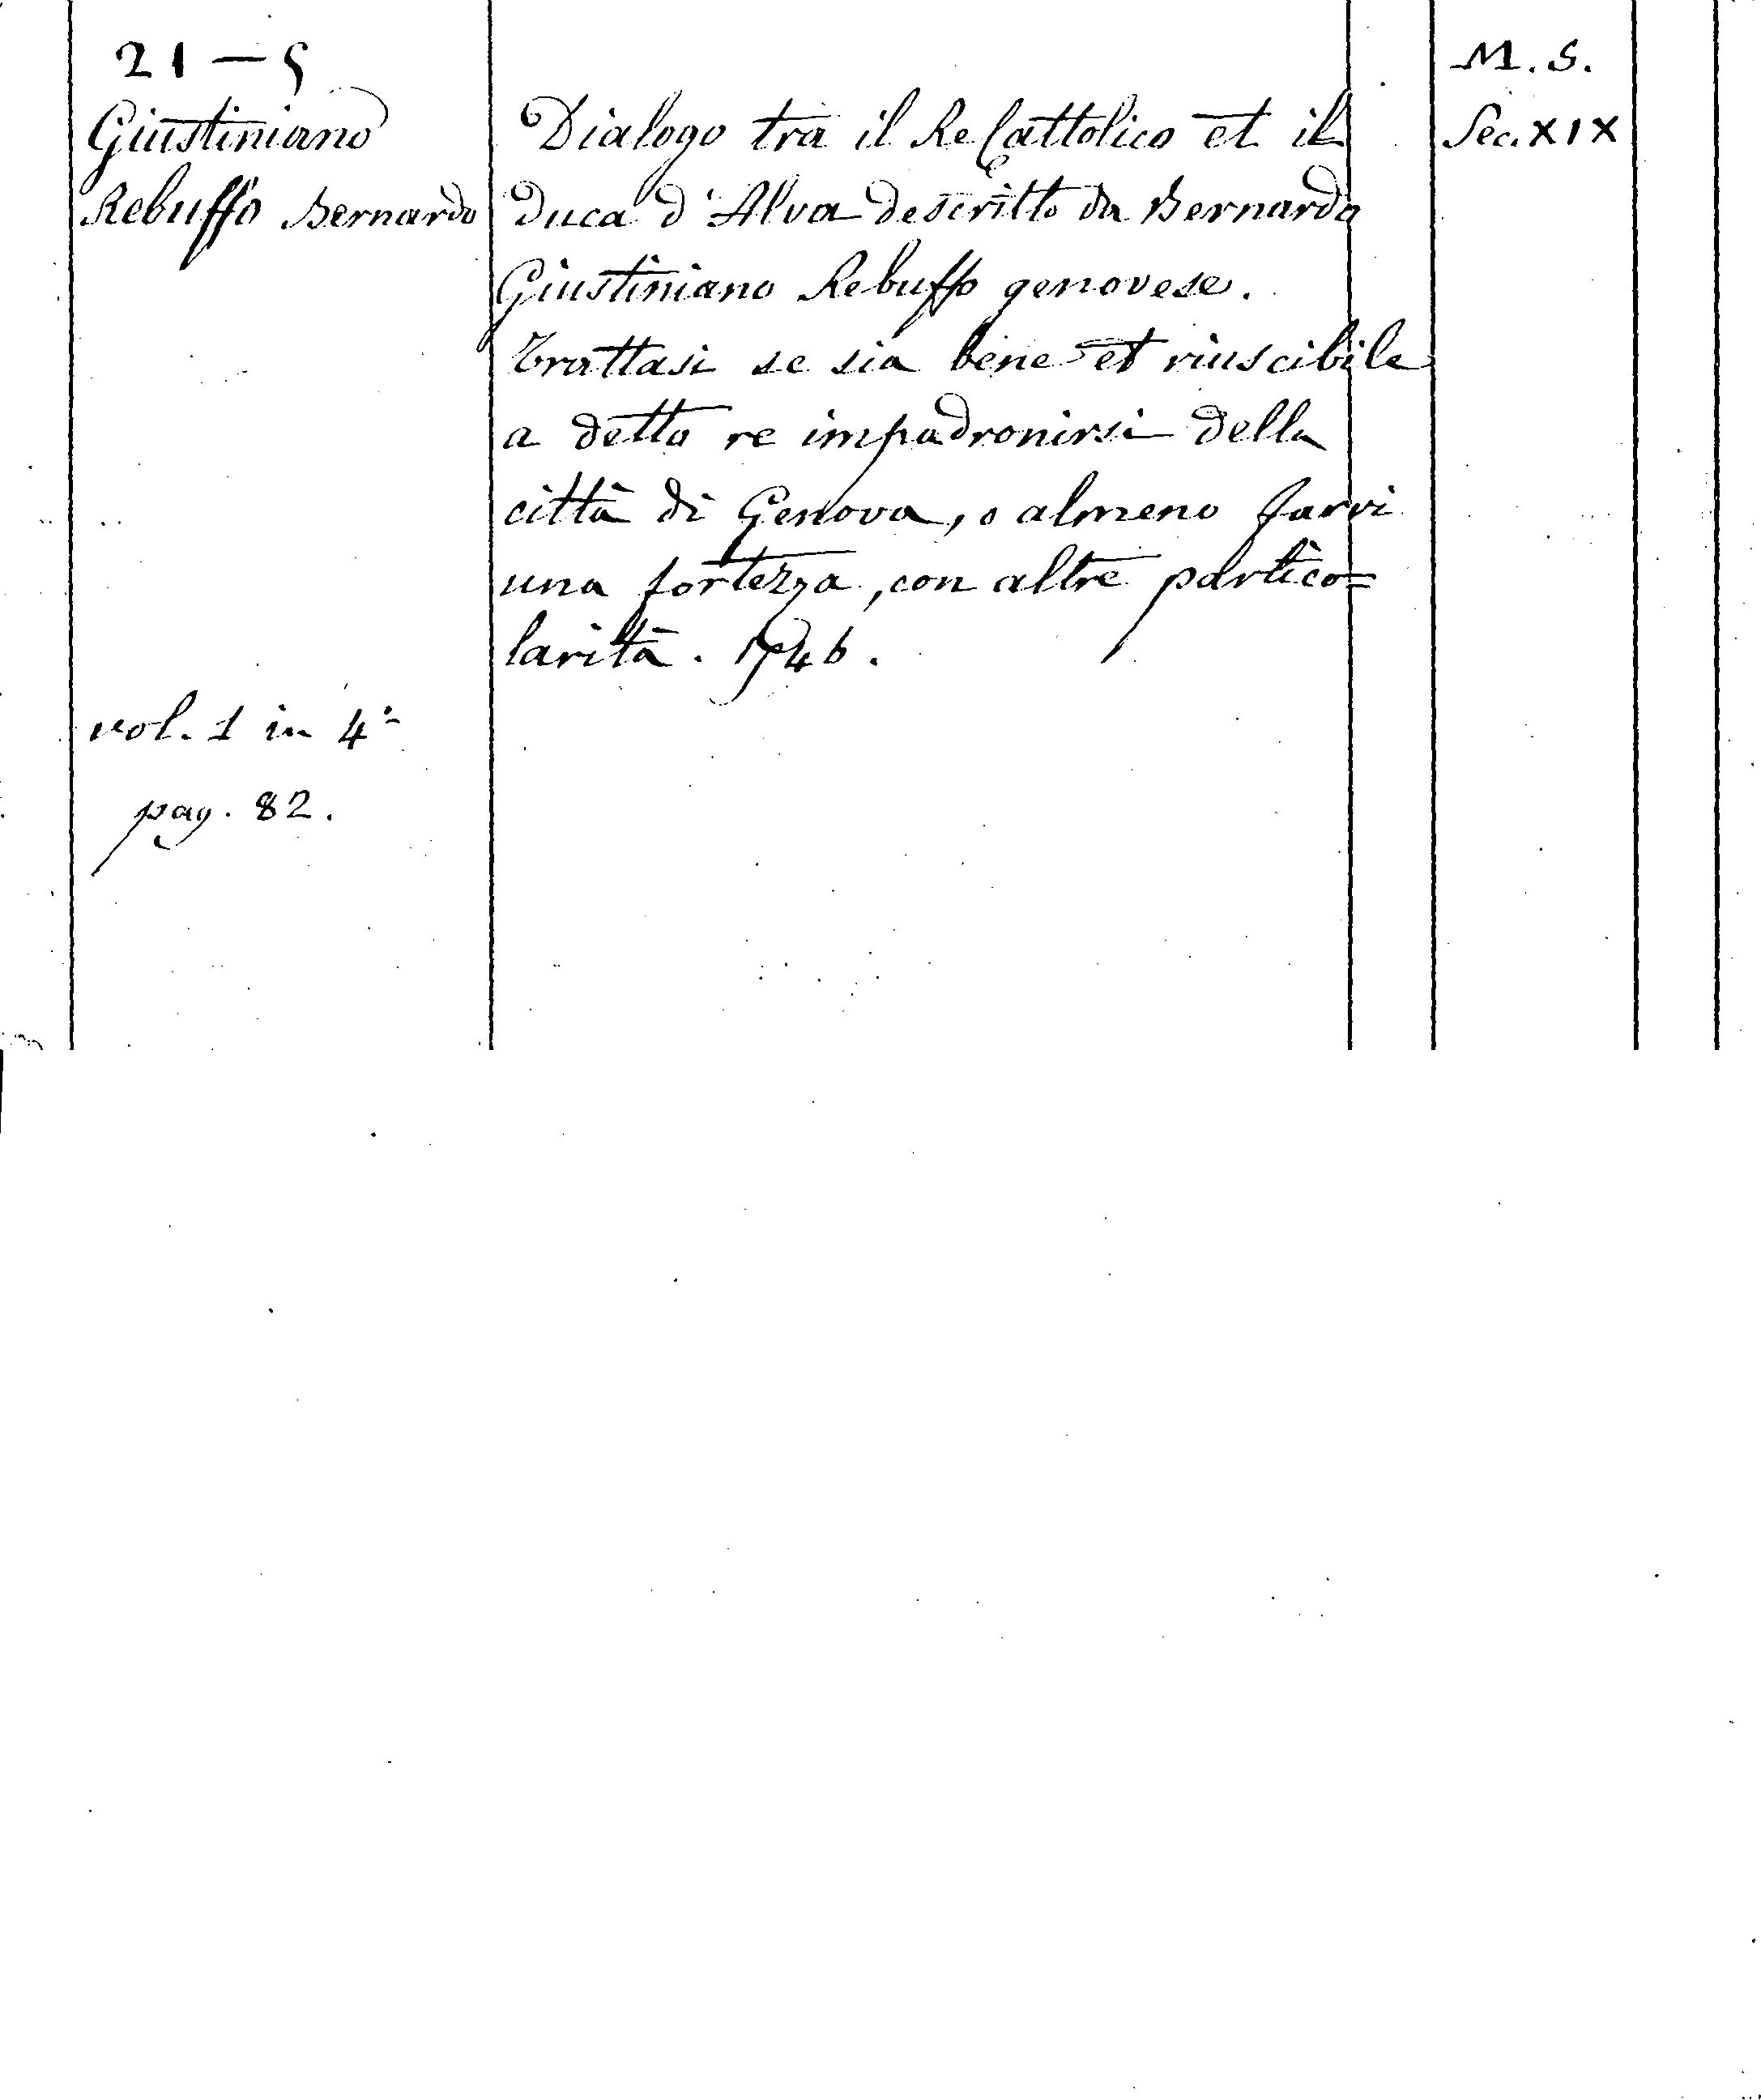 21 — 5
Giustiniano
Rebuffo Bernardo
vol. 1 in 4°
pag. 82.
Dialogo tra il Re Cattolico et il
Duca d'Alva descritto da Bernardo
Giustiniano Rebuffo genovese.
Trattasi se sia bene et riuscibile
a detto re impadronirsi della
città di Genova, o almeno farvi
una fortezza, con altre partico=
larità. 1746.
M. S.
Sec. XIX